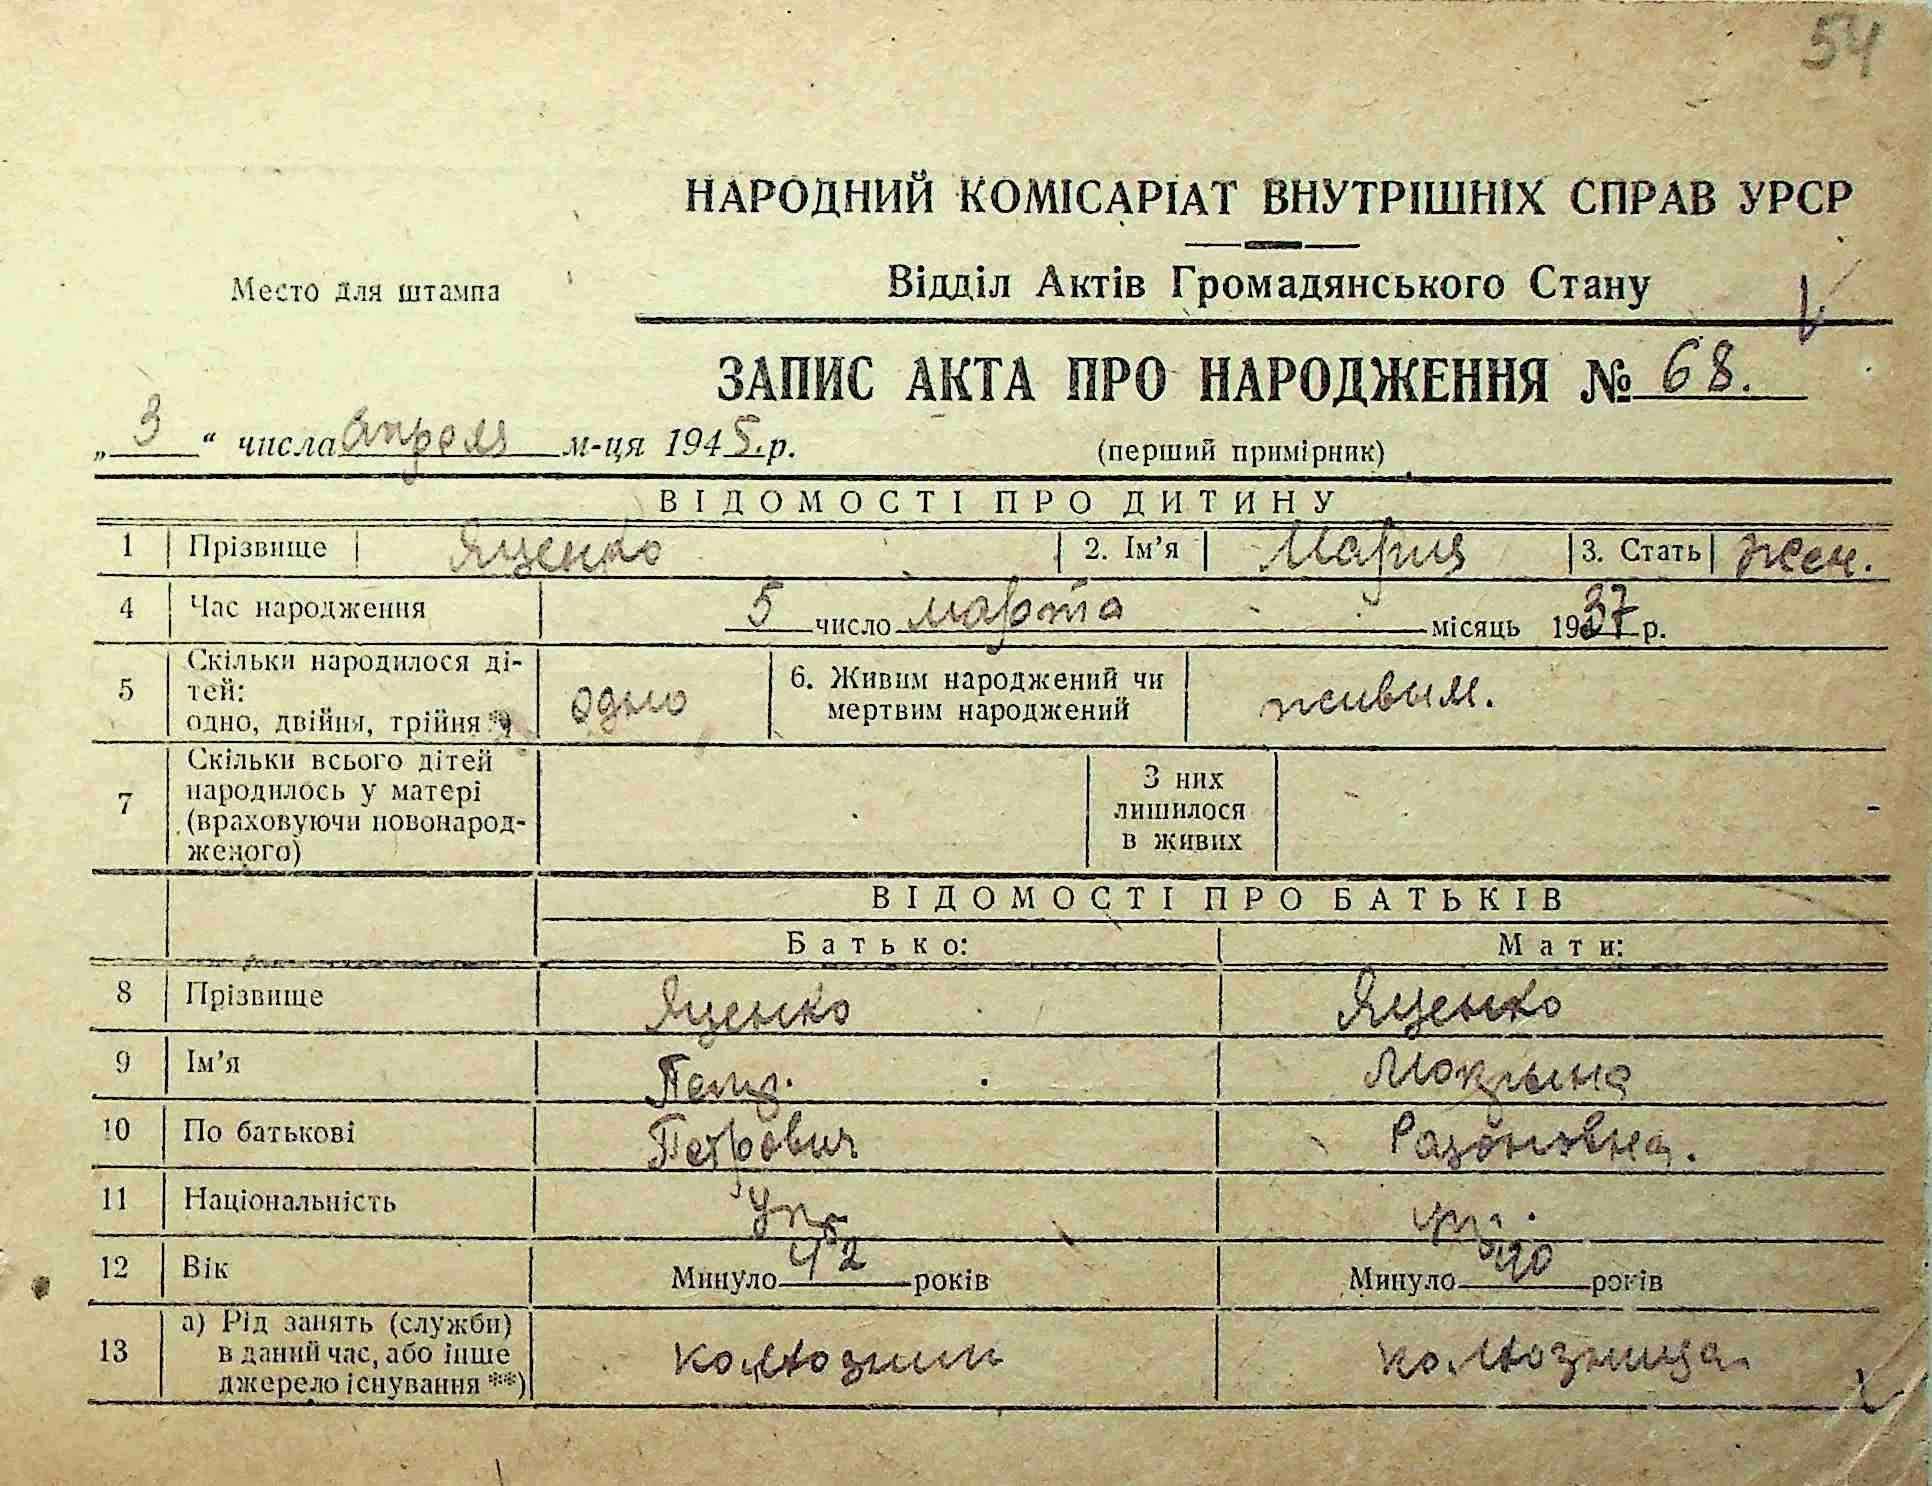 54
НАРОДНИЙ КОМІСАРІАТ ВНУТРІШНІХ СПРАВ УРСР
Место для штампа
Відділ Актів Громадянського Стану
ЗАПИС АКТА ПРО НАРОДЖЕННЯ № 68.
„3“ числа апреля м-ця 1945.р.
(перший примірник)
ВІДОМОСТІ ПРО ДИТИНУ
1 Прізвище Яценко 2. Ім'я Мария 3. Стать жен.
4 Час народження 5 число марта місяць 1937 р.
5 Скільки народилося ді-
тей:
одно, двійня, трійня *) одно 6. Живим народжений чи
мертвим народжений живым.
7 Скільки всього дітей
народилось у матері
(враховуючи новонарод-
женого) З них
лишилося
в живих
ВІДОМОСТІ ПРО БАТЬКІВ
Батько: Мати:
8 Прізвище Яценко Яценко
9 Ім'я Петр.
10 По батькові Петрович
11 Національність Укр укр.
12 Вік Минуло 42 років Минуло 40 років
13 а) Рід занять (служби)
в даний час, або інше
джерело існування **) колхозник колхозница.